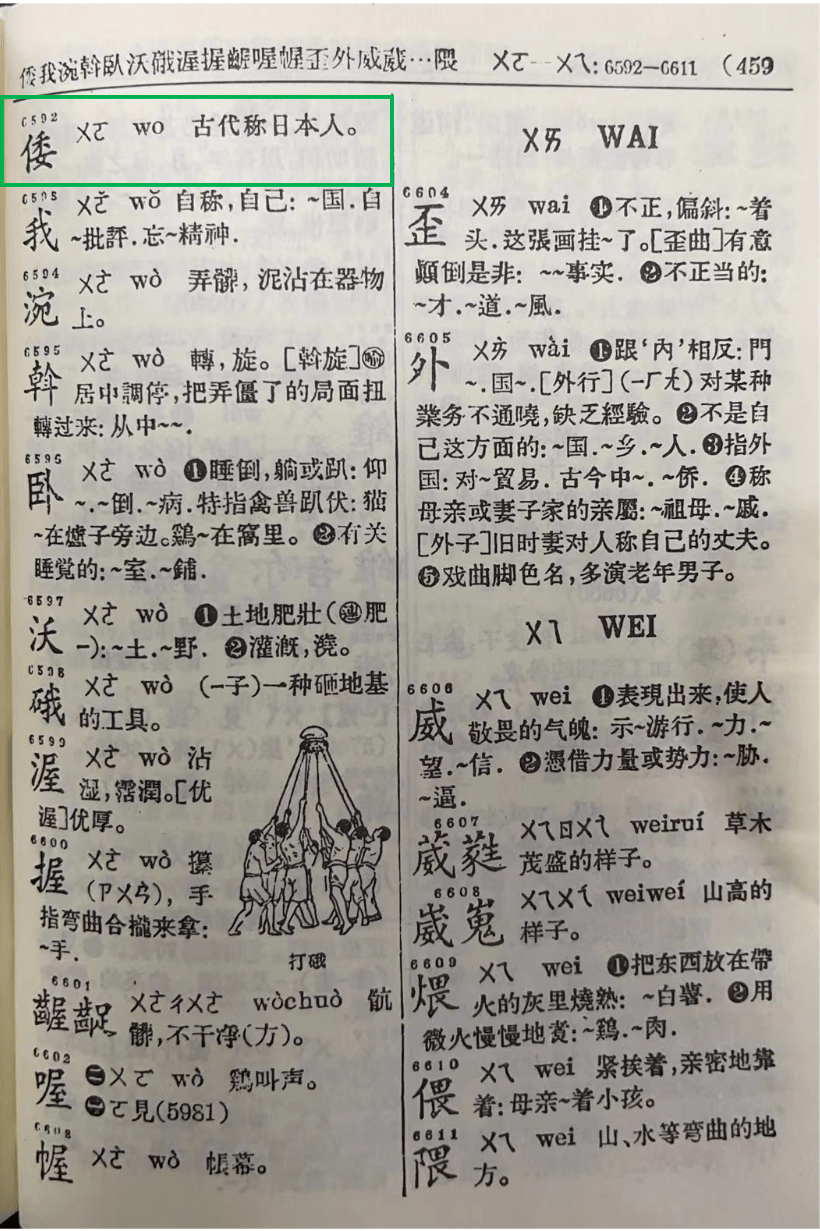 倭我涴斡臥沃硪渥握齷喔幄歪外威葳…隈 ㄨㄛ—ㄨㄟ: 6592—6611 (459
6592
倭 ㄨㄛ wo 古代称日本人。
6593
我 ㄨㄛˇ wǒ 自称,自己: ~国. 自
~批評. 忘~精神.
6594
涴 ㄨㄛˋ wò 弄髒, 泥沾在器物
上。
6595
斡 ㄨㄛˋ wò 轉, 旋。[斡旋]㊀喻
居中調停, 把弄僵了的局面扭
轉过来: 从中~~.
6596
卧 ㄨㄛˋ wò ❶睡倒, 躺或趴: 仰
~. ~倒. ~病. 特指禽兽趴伏: 猫
~在爐子旁边。鷄~在窩里。❷有关
睡觉的: ~室. ~鋪.
6597
沃 ㄨㄛˋ wò ❶土地肥壯(連肥
—): ~土. ~野. ❷灌漑, 澆。
6598
硪 ㄨㄛˋ wò (—子)一种砸地基
的工具。
6599
渥 ㄨㄛˋ wò 沾
湿, 霑潤。[优
渥]优厚。
6600
握 ㄨㄛˋ wò 攥
(ㄗㄨㄢˋ), 手
指弯曲合攏来拿:
~手.
打硪
6601
齷齪 ㄨㄛˋㄔㄨㄛˋ wòchuò 骯
髒, 不干净(方)。
6602
喔 ㊁ㄨㄛ wò 鷄叫声。
㊀ㄛ見(5981)
6603
幄 ㄨㄛˋ wò 帳幕。
ㄨㄞ WAI
6604
歪 ㄨㄞ wai ❶不正, 偏斜: ~着
头. 这張画挂~了。[歪曲]有意
顚倒是非: ~~事实. ❷不正当的:
~才. ~道. ~風.
6605
外 ㄨㄞˋ wài ❶跟‘內’相反: 門
~. 国~. [外行](—ㄏㄤˊ)对某种
業务不通曉, 缺乏經驗。❷不是自
己这方面的: ~国. ~乡. ~人. ❸指外
国: 对~貿易. 古今中~. ~侨. ❹称
母亲或妻子家的亲屬: ~祖母. ~戚.
[外子]旧时妻对人称自己的丈夫。
❺戏曲脚色名, 多演老年男子。
ㄨㄟ WEI
6606
威 ㄨㄟ wei ❶表現出来, 使人
敬畏的气魄: 示~游行. ~力. ~
望. ~信. ❷憑借力量或势力: ~胁.
~逼.
6607
葳蕤 ㄨㄟㄖㄨㄟˊ weiruí 草木
茂盛的样子。
6608
崴嵬 ㄨㄟㄨㄟˊ weiweí 山高的
样子。
6609
煨 ㄨㄟ wei ❶把东西放在帶
火的灰里燒熟: ~白薯. ❷用
微火慢慢地煑: ~鷄. ~肉.
6610
偎 ㄨㄟ wei 紧挨着, 亲密地靠
着: 母亲~着小孩。
6611
隈 ㄨㄟ wei 山、水等弯曲的地
方。